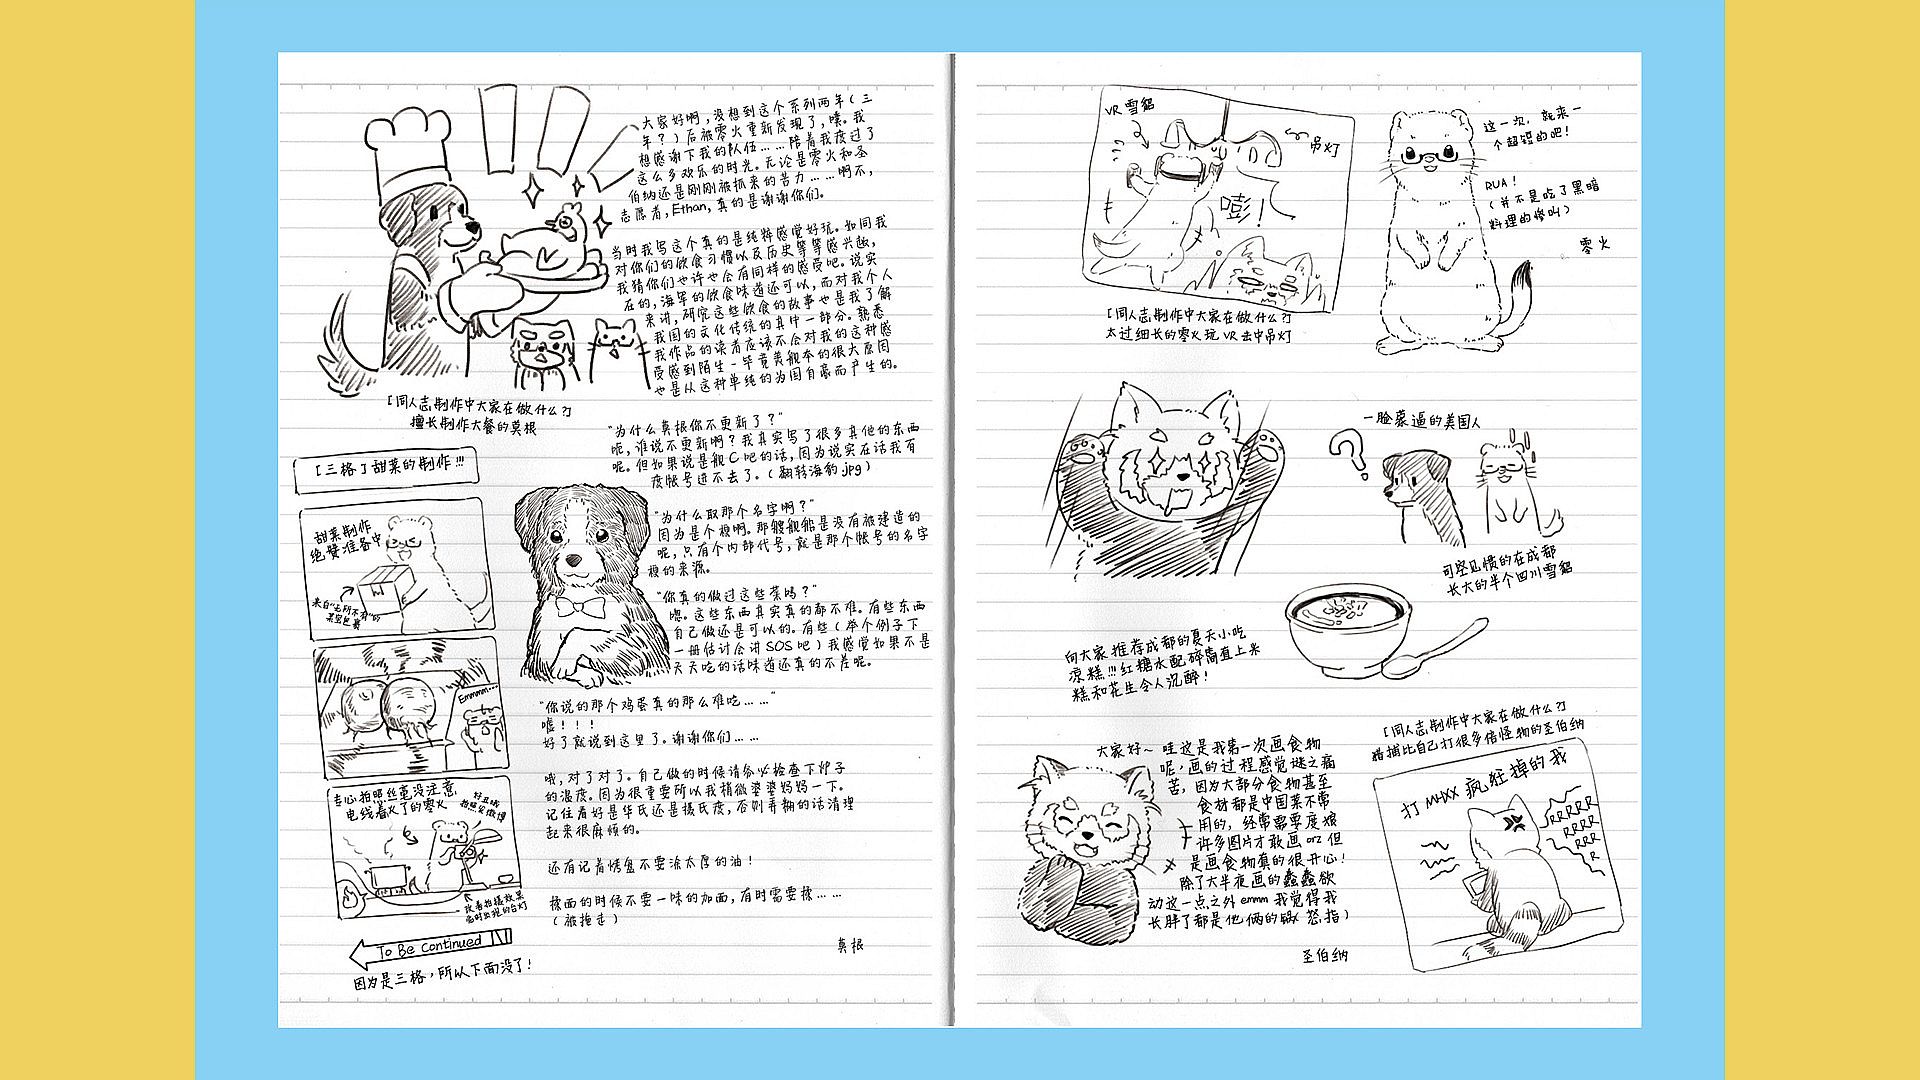 大家好啊,没想到这个系列两年(三
年?)后被零火重新发现了,噗。我
想感谢下我的队伍……陪着我度过了
这么多欢乐的时光。无论是零火和圣
伯纳还是刚刚被抓来的苦力……啊不,
志愿者,Ethan,真的是谢谢你们。
当时我写这个真的是纯粹感觉好玩。如同我
对你们的饮食习惯以及历史等等感兴趣,
我猜你们也许也会有同样的感受吧。说实
在的,海军的饮食味道还可以,而对我个人
来讲,研究这些饮食的故事也是我了解
我国的文化传统的其中一部分。熟悉
我作品的读者应该不会对我的这种感
受感到陌生-毕竟美舰本的很大原因
也是从这种单纯的为国自豪而产生的。
「同人志制作中大家在做什么?」
擅长制作大餐的莫根
"为什么莫根你不更新了?"
呃,谁说不更新啊?我其实写了很多其他的东西
呢。但如果说是舰C吧的话,因为说实在话我百
度帐号进不去了。(翻转海豹.jpg)
"为什么取那个名字啊?"
因为是个梗啊。那艘舰船是没有被建造的
呢,只有个内部代号,就是那个帐号的名字
梗的来源。
"你真的做过这些菜吗?"
嗯。这些东西其实真的都不难。有些东西
自己做还是可以的。有些(举个例子下
一册估计会讲SOS吧)我感觉如果不是
天天吃的话味道还真的不差呢。
"你说的那个鸡蛋真的那么难吃……"
嘘!!!
好了就说到这里了。谢谢你们……
哦,对了对了。自己做的时候请务必检查下炉子
的温度。因为很重要所以我稍微婆婆妈妈一下。
记住看好是华氏还是摄氏度,否则弄糊的话清理
起来很麻烦的。
还有记着烤盘不要涂太厚的油!
揉面的时候不要一味的加面,有时需要揉……
(被拖走)
莫根
[三格]甜菜的制作!!!
甜菜制作
绝赞准备中
来自"無所不有"的
某宝包裹
Emmm...
专心拍照丝毫没注意
电线着火了的零火
好丑哦
拍照发微博
To Be Continued
因为是三格,所以下面没了!
VR雪貂
吊灯
嘭!
「同人志制作中大家在做什么?」
太过细长的零火玩VR击中吊灯
这一次,就来一
个超短的吧!
RUA!
(并不是吃了黑暗
料理的惨叫)
零火
一脸蒙逼的美国人
司空见惯的在成都
长大的半个四川雪貂
向大家推荐成都的夏天小吃
凉糕!!!红糖水配碎高直上米
糕和花生令人沉醉!
大家好~ 哇这是我第一次画食物
呢,画的过程感觉谜之痛
苦,因为大部分食物甚至
食材都是中国菜不常
用的,经常需要度娘
许多图片才敢画orz但
是画食物真的很开心!
除了大半夜画的蠢蠢欲
动这一点之外emmm我觉得我
长胖了都是他俩的锅(怒指)
圣伯纳
「同人志制作中大家在做什么?」
猎捕比自己打很多倍怪物的圣伯纳
打MHXX疯狂掉的我
RRRR
RRRR
RRR
R